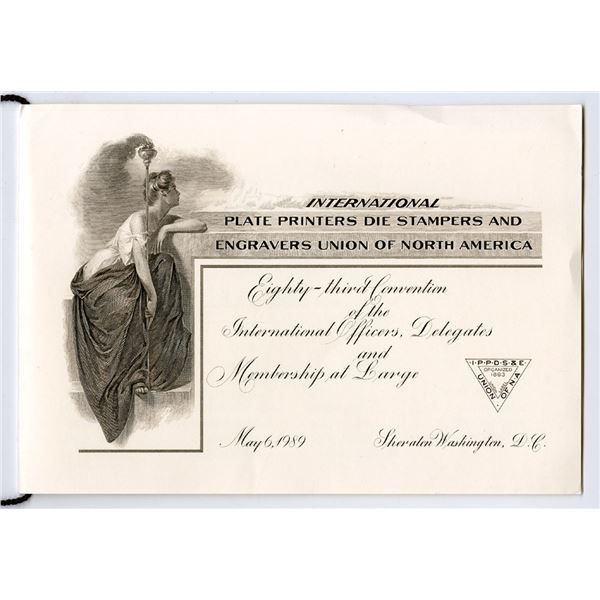 INTERNATIONAL
PLATE PRINTERS DIE STAMPERS AND
ENGRAVERS UNION OF NORTH AMERICA
Eighty-third Convention
of the
International Officers, Delegates
and
Membership at Large
I·P·P·D·S·&·E·
ORGANIZED
1893
UNION OF N.A.
May 6, 1989
Sheraton Washington, D.C.